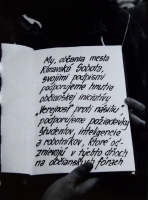 My, občania mesta
Rimavská Sobota,
svojimi podpismi
podporujeme hnutie
občianskej iniciatívy
„Verejnosť proti násiliu“
podporujeme požiadavky
študentov, inteligencie
a robotníkov, ktoré od-
znievajú v týchto dňoch
na občianskych fórach